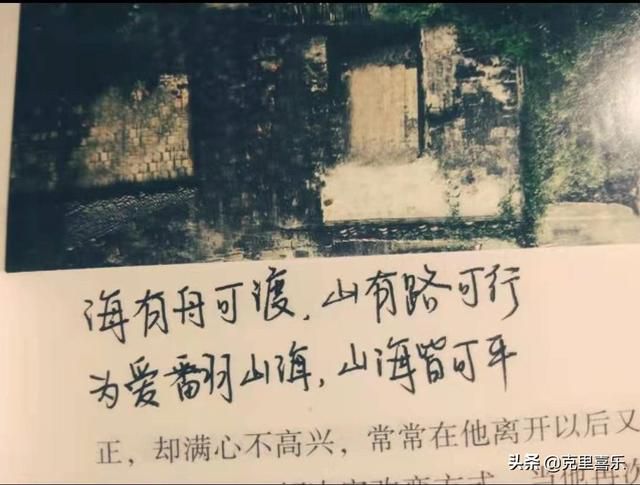 海有舟可渡，山有路可行
为爱翻山海，山海皆可平
正，却满心不高兴，常常在他离开以后又
头条 @克里喜乐